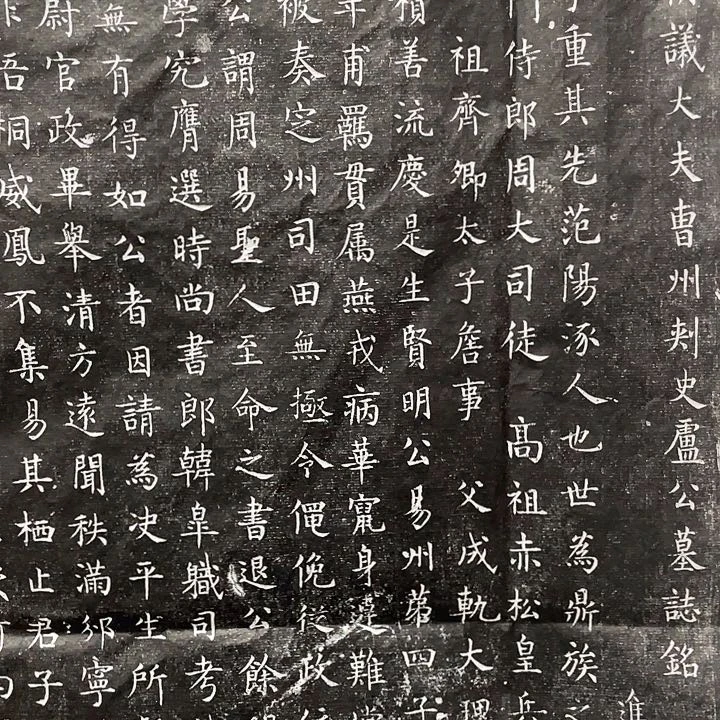 議大夫曺州刾史盧公墓誌銘
重其先范陽涿人也世為鼎族之
門侍郎周大司徒 高祖赤松皇兵
祖齊卿太子詹事 父成軌大理
積善流慶是生賢明公易州苐四子
年甫羈貫属燕戎病華竄身違難
被奏定州司田無極令僶俛從政
公謂周易聖人至命之書退公餘
學究膺選時尚書郎韓皐軄司考
無有得如公者因請為决平生所
尉官政畢舉清方遠聞秩滿邠寧
吾桐威鳳不集易其栖止君子